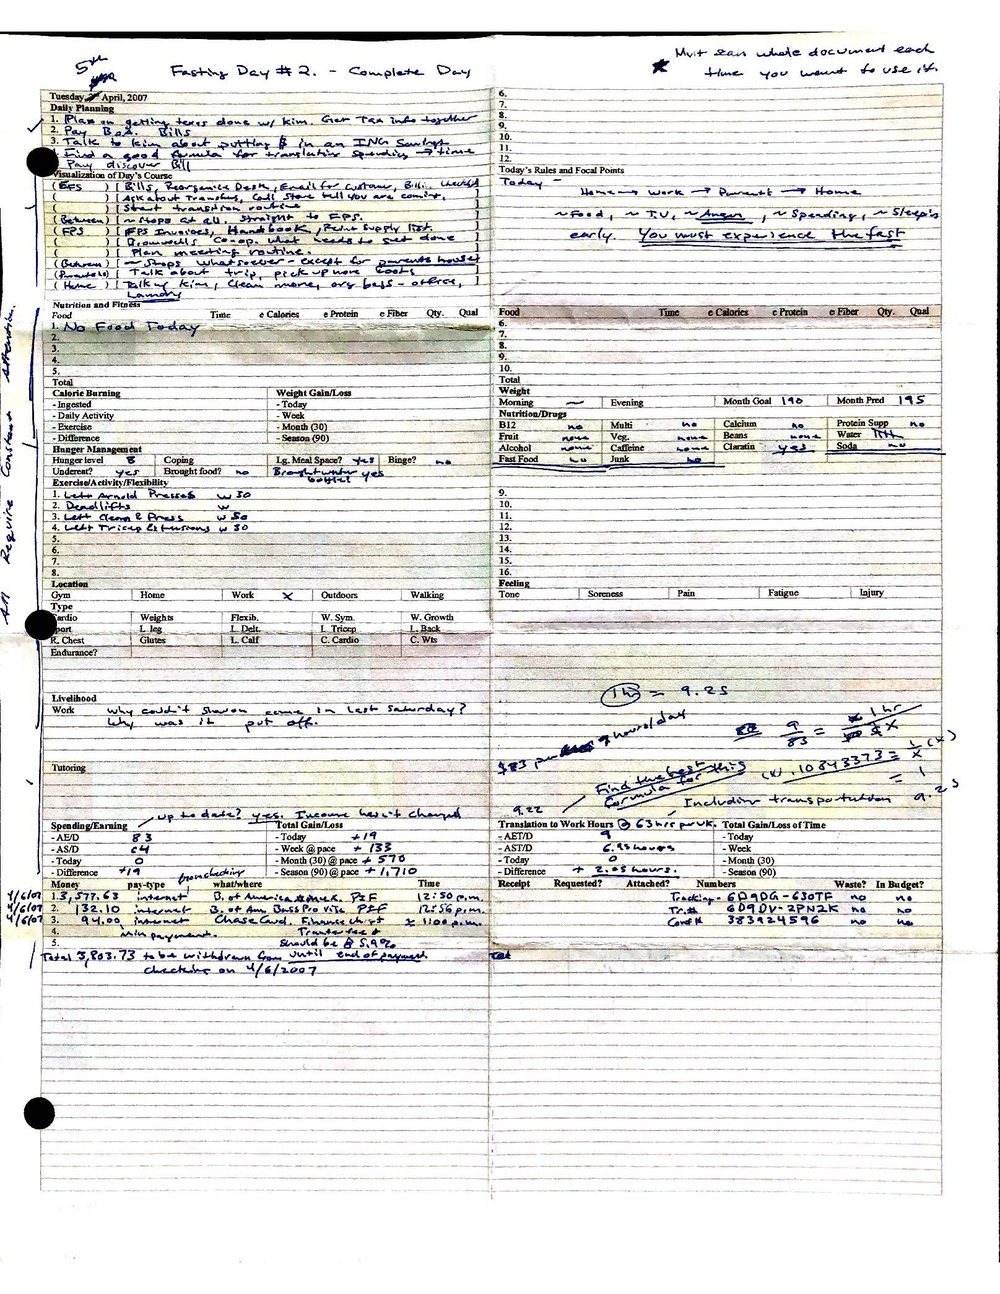 5th
Fasting Day #2. - Complete Day
Must scan whole document each
time you want to use it.
Tuesday, April, 2007
Daily Planning
1. Plan on getting taxes done w/ Kim. Get Tax info together
2. Pay B.o.A. Bills
3. Talk to Kim about putting $ in an ING Savings
Find a good formula for translating Spending → time
Pay discover Bill
Visualization of Day's Course
(EFS ) [ Bills, Reorganize Desk, Email for Customer, Bill. Checklist ]
( ) [ Ask about Transfers, Call Store tell you are coming. ]
( ) [ Start transition routine ]
(Between ) [ ~ Stops at all, Straight to EPS. ]
( EPS ) [ EPS Invoices, Handbook, Paint Supply list. ]
( ) [ Co-op. what needs to get done ]
( ) [ Plan meeting routine. ]
(Between ) [ ~ Shops whatsoever - except for parents house ]
(Parents ) [ Talk about trip, pick up more boots ]
( Home ) [ Talk w/ Kim, Clean more, org bags - office, ]
Laundry
6.
7.
8.
9.
10.
11.
12.
Today's Rules and Focal Points
Today -
Home → Work → Parents → Home
~Food, ~ T.V, ~ Anger, ~ Spending, ~ Sleeping
early. You must experience the fast
Nutrition and Fitness
Food Time e Calories e Protein e Fiber Qty. Qual
1. No Food Today
2.
3.
4.
5.
Total
Food Time e Calories e Protein e Fiber Qty. Qual
6.
7.
8.
9.
10.
Total
Calorie Burning Weight Gain/Loss
- Ingested - Today
- Daily Activity - Week
- Exercise - Month (30)
- Difference - Season (90)
Weight
Morning ~ Evening Month Goal 190 Month Pred 195
Nutrition/Drugs
B12 no Multi no Calcium no Protein Supp no
Fruit none Veg. none Beans none Water
Alcohol none Caffeine none Claratin yes Soda no
Fast Food no Junk no
Hunger Management
Hunger level 8 Coping Lg. Meal Space? yes Binge? no
Undereat? yes Brought food? no Brought water bottles yes
Exercise/Activity/Flexibility
1. Left Arnold Presses w 50
2. Deadlifts w
3. Left Clean & Press w 50
4. Left Tricep Extensions w 50
5.
6.
7.
8.
9.
10.
11.
12.
13.
14.
15.
16.
Location
Gym Home Work X Outdoors Walking
Type
Cardio Weights Flexib. W. Sym. W. Growth
Sport L leg L Delt. L Tricep L. Back
R. Chest Glutes L. Calf C. Cardio C. Wts
Endurance?
Feeling
Tone Soreness Pain Fatigue Injury
All Require Constant Attention.
Livelihood
Work Why couldn't Sharon come in last Saturday?
Why was it put off.
Tutoring
1 hr = 9.25
$83 per 9 hours/day
9/83 = 1 hr/$ X
(X) .10843373 = 1/X (X)
= 1
9.25
Find the best
formula for this
Including transportation
9.22
up to date? yes. Income hasn't changed
Spending/Earning Total Gain/Loss
- AE/D 83 - Today +19
- AS/D 64 - Week @ pace + 133
- Today 0 - Month (30) @ pace + 570
- Difference +19 - Season (90) @ pace + 1,710
Translation to Work Hours @ 63 hrs per wk. Total Gain/Loss of Time
- AET/D 9 - Today
- AST/D 6.95 hours - Week
- Today 0 - Month (30)
- Difference + 2.05 hours. - Season (90)
from checking
Money pay-type what/where Time
4/6/07 1. 3,577.63 internet B. of America PIF 12:50 p.m.
4/6/07 2. 132.10 internet B. of Am. Bass Pro Visa PIF 12:56 p.m.
4/6/07 3. 94.00 internet Chase Card. Finance chrgs ≈ 1:00 p.m.
4. Min payment. Transfer
5. Should be @ 5.9%
Total 3,803.73 to be withdrawn from until end of payment
checking on 4/6/2007
Receipt Requested? Attached? Numbers Waste? In Budget?
Tracking - 6D9DG-63OTF no no
Tr.# 6D9DV-2PN2K no no
Conf# 383924596 no no